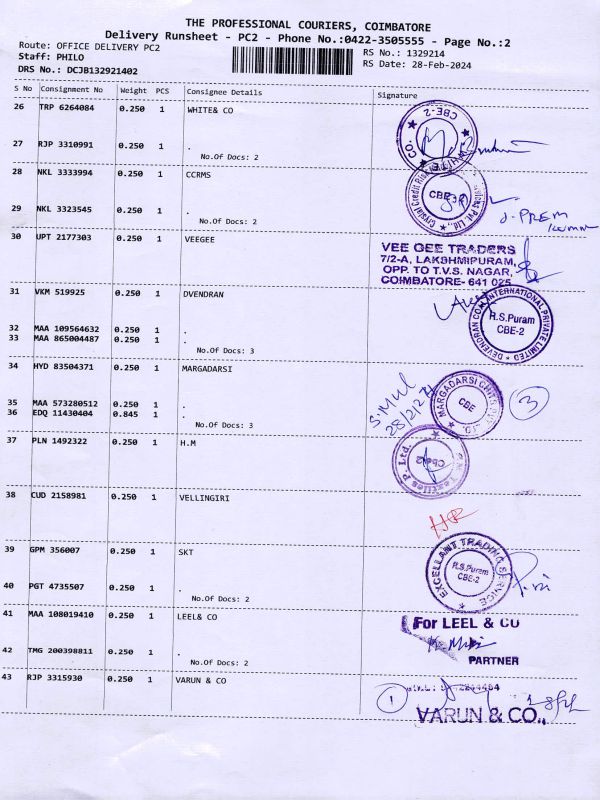 THE PROFESSIONAL COURIERS, COIMBATORE
Delivery Runsheet - PC2 - Phone No.:0422-3505555 - Page No.:2
Route: OFFICE DELIVERY PC2
RS No.: 1329214
Staff: PHILO
RS Date: 28-Feb-2024
DRS No.: DCJB132921402
S No Consignment No Weight PCS Consignee Details Signature
26 TRP 6264084 0.250 1 WHITE& CO
CBE-2
CO.
WHITE
27 RJP 3310991 0.250 1 .
No.Of Docs: 2
28 NKL 3333994 0.250 1 CCRMS
Crystal Credit Pvt. Ltd.,
CBE
29 NKL 3323545 0.250 1 .
No.Of Docs: 2
J. PREM
30 UPT 2177303 0.250 1 VEEGEE
VEE GEE TRADERS
7/2-A, LAKSHMIPURAM,
OPP. TO T.V.S. NAGAR,
COIMBATORE- 641 025
31 VKM 519925 0.250 1 DVENDRAN
DEVENDRAN COAL INTERNATIONAL PRIVATE LIMITED
R.S.Puram
CBE-2
32 MAA 109564632 0.250 1 .
33 MAA 865004487 0.250 1 .
No.Of Docs: 3
34 HYD 83504371 0.250 1 MARGADARSI
MARGADARSI CHITS
CBE
3
28/2/24
35 MAA 573280512 0.250 1 .
36 EDQ 11430404 0.845 1 .
No.Of Docs: 3
37 PLN 1492322 0.250 1 H.M
Textiles P. Ltd.
38 CUD 2158981 0.250 1 VELLINGIRI
39 GPM 356007 0.250 1 SKT
EXCELLANT TRADING SERVICE
R.S.Puram
CBE-2
40 PGT 4735507 0.250 1 .
No.Of Docs: 2
41 MAA 108019410 0.250 1 LEEL& CO
For LEEL & CO
PARTNER
42 TMG 200398811 0.250 1 .
No.Of Docs: 2
43 RJP 3315930 0.250 1 VARUN & CO
1
VARUN & CO.,